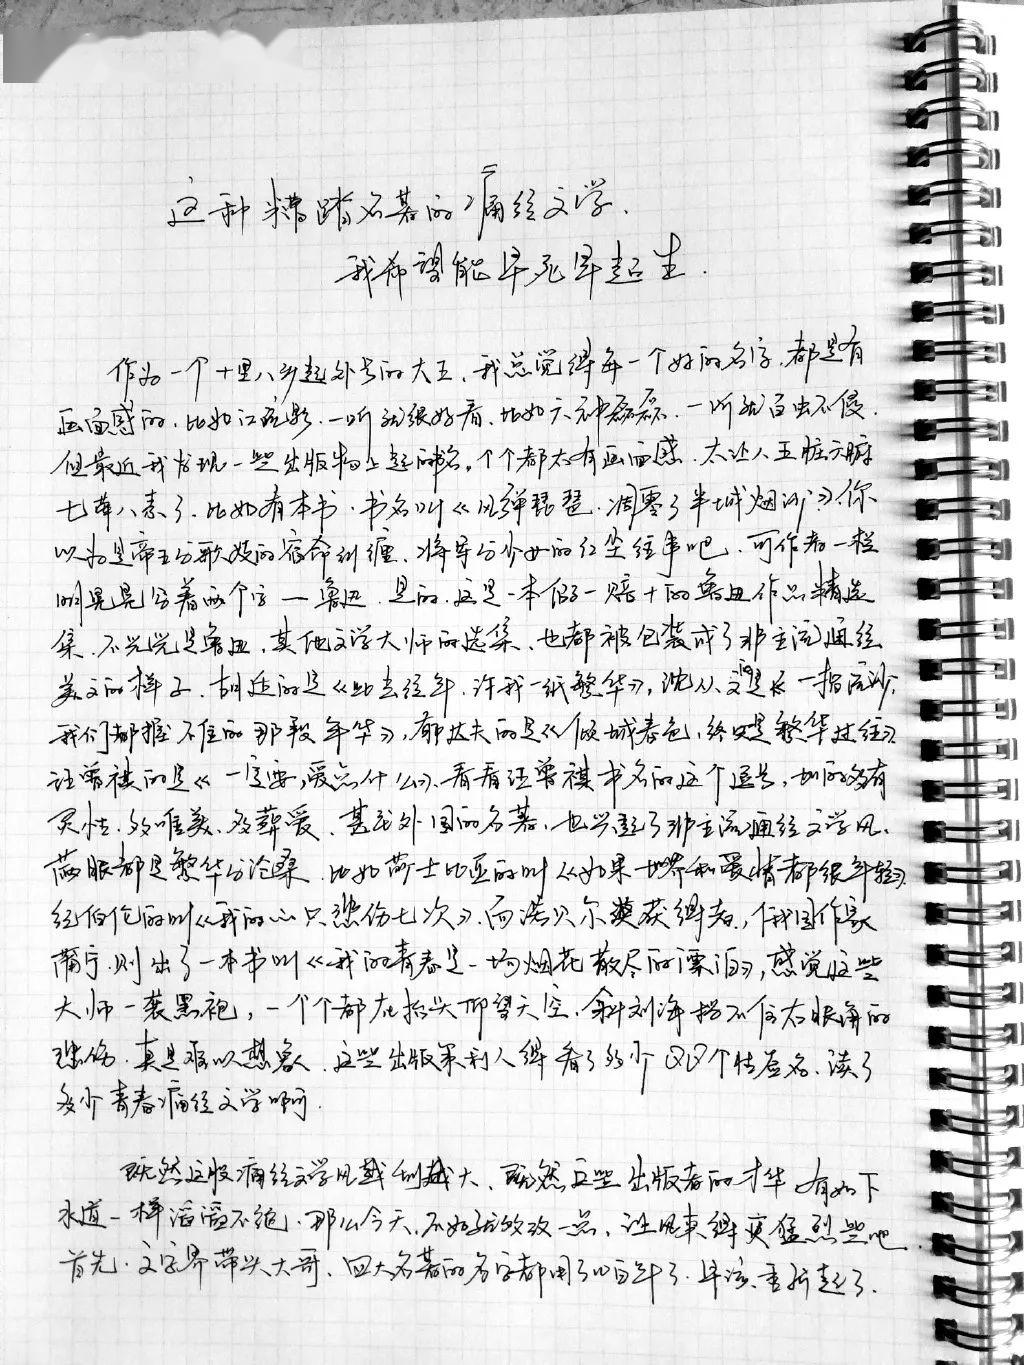 这种糟蹋名著的痛经文学,
我希望能早死早起生.
作为一个十里八乡起外号的大王,我总觉得每一个好的名字,都是有
画面感的,比如江疏影,一听就很好看,比如六神磊磊,一听就百虫不侵.
但最近我发现一些出版物上起的书名,个个都太有画面感,太让人五脏六腑
七荤八素了.比如有本书,书名叫《风弹琵琶,凋零了半城烟沙》,你
以为是帝王与歌妓的宿命纠缠,将军与少女的红尘往事吧,可作者一栏
明晃晃写着两个字—鲁迅.是的,这是一本假一赔十的鲁迅作品精选
集.不光光是鲁迅,其他文学大师的选集,也都被包装成了非主流痛经
美文的样子.胡适的是《此去经年,许我一纸繁华》,沈从文的是《一指流沙,
我们都握不住的那段年华》,郁达夫的是《倾城春色,终只是繁华过往》
汪曾祺的是《一定要,爱点什么》,看看汪曾祺书名的这个逗号,加的多有
灵性,多唯美,多葬爱.甚至外国的名著,也兴起了非主流痛经文学风,
满眼都是繁华与沧桑.比如莎士比亚的叫《如果世界和爱情都很年轻》,
拜伦的叫《我的心只悲伤七次》,而诺贝尔奖获得者,俄国作家
蒲宁,则出了一本书叫《我的青春是一场烟花散尽的漂泊》,感觉这些
大师一袭黑袍,一个个都在抬头仰望天空,斜刘海挡不住右眼角的
悲伤.真是难以想象,这些出版策划人得看了多少QQ个性签名,读了
多少青春痛经文学啊.
既然这股痛经文学风越刮越大,既然这些出版者的才华有如下
水道一样滔滔不绝,那么今天,不如放纵一点,让风来得更猛烈些吧.
首先,文字界带头大哥,四大名著的名字都用了几百年了,早该重新起了.